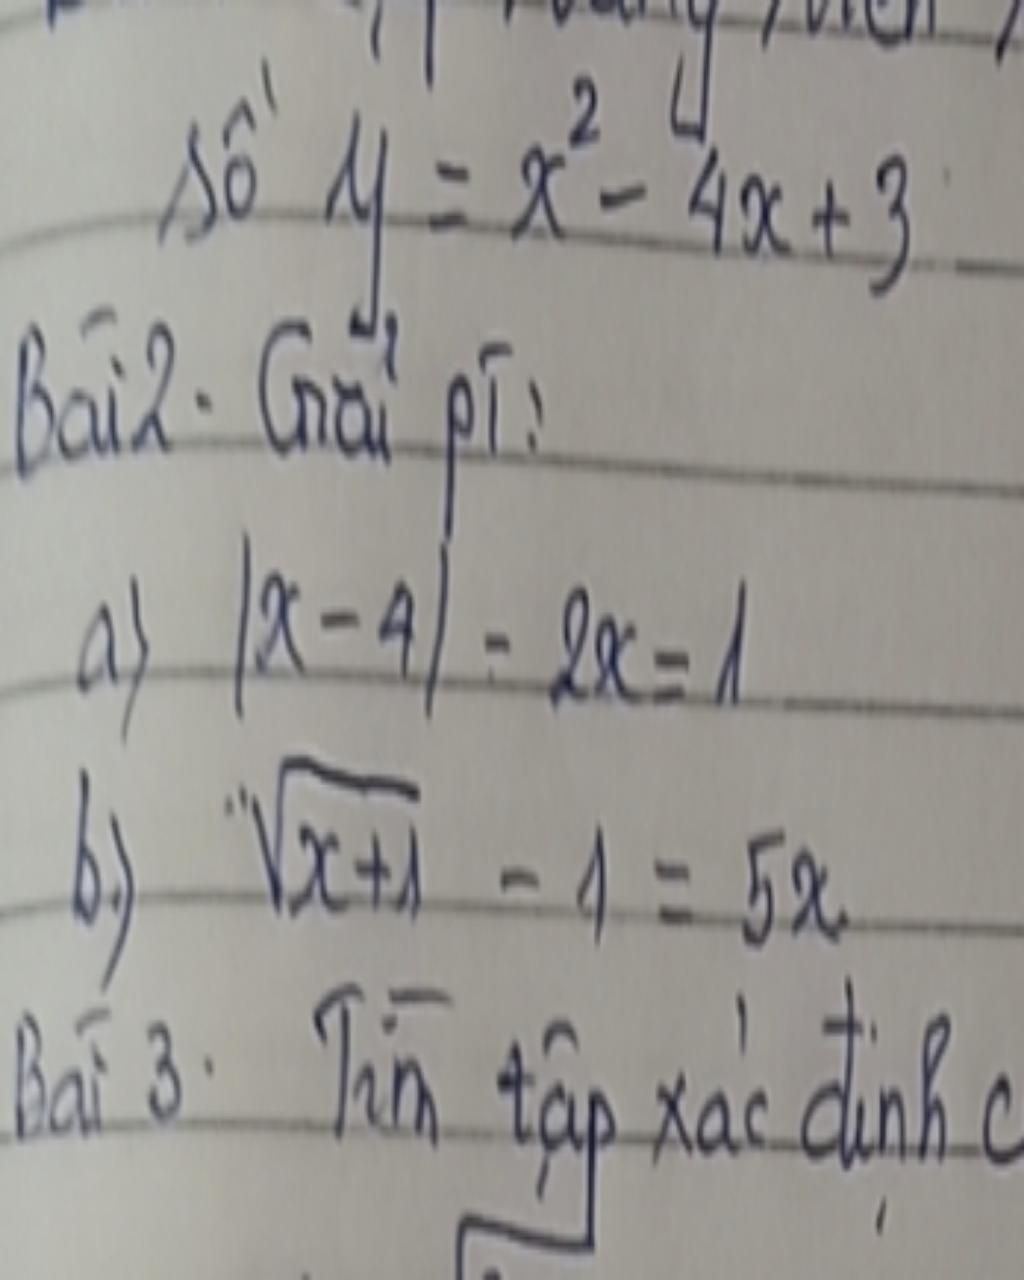 số y = x² - 4x + 3
Bài 2. Giải pt:
a) |x - 4| - 2x = 1
b) √(x+1) - 1 = 5x
Bài 3. Tìm tập xác định c